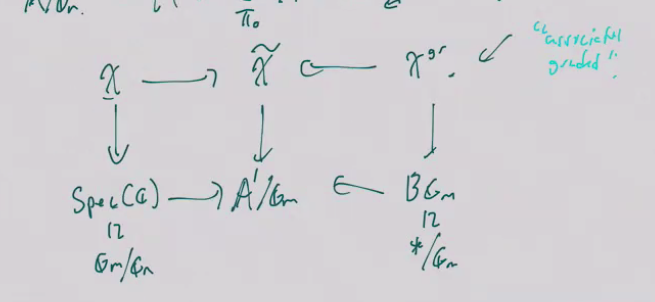 π₀
X ⟶ X̃ ⟵ X^gr.
"associated graded"
Spec(C) ⟶ A¹/Gm ⟵ BGm
Gm/Gm
*/Gm